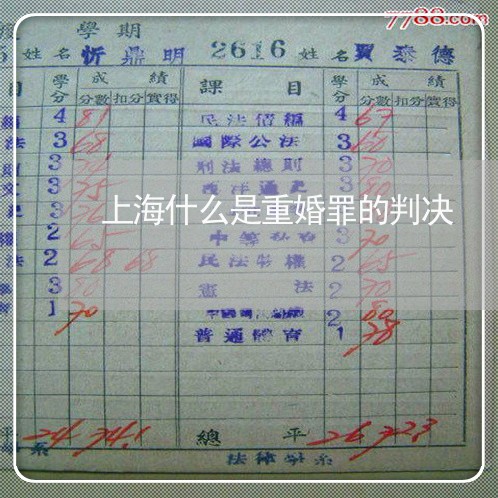 7788.com
學期
姓名 忻鼎明 2616 姓名 賈泰德
目 學分 成績 課目 學分 成績
分數 扣分 實得 分數 扣分 實得
4 81 民法債編 4 67
法 3 68 國際公法 3 60
3 刑法總則 3 70
文 3 75 西洋通史 3 80
上海什么是重婚罪的判决
2 65 3 70
法 2 68 68 民法物權 2 65
3 80 憲法 2 70
1 70 2 80
普通體育 1 78
平 24 74.1 總平 26 72.3
系 法律學系